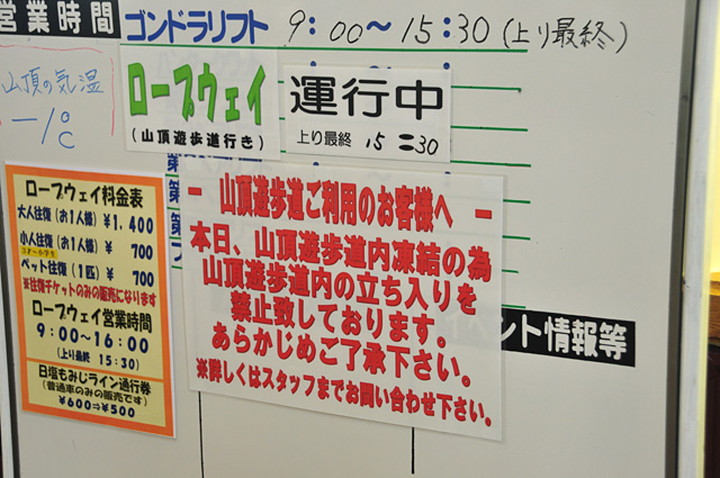 営業時間
ゴンドラリフト 9:00～15:30(上り最終)
山頂の気温
-1℃
ロープウェイ
(山頂遊歩道行き)
運行中
上り最終 15=30
ロープウェイ料金表
大人往復(お1人様)¥1,400
小人往復(お1人様)¥ 700
ペット往復(1匹)¥ 700
※往復チケットのみの販売になります
ロープウェイ営業時間
9:00～16:00
(上り最終 15:30)
日塩もみじライン通行券
(普通車のみの販売です)
¥600⇨¥500
第
第
ー 山頂遊歩道ご利用のお客様へ ー
本日、山頂遊歩道内凍結の為
山頂遊歩道内の立ち入りを
禁止致しております。
あらかじめご了承下さい。
※詳しくはスタッフまでお問い合わせ下さい。
イベント情報等